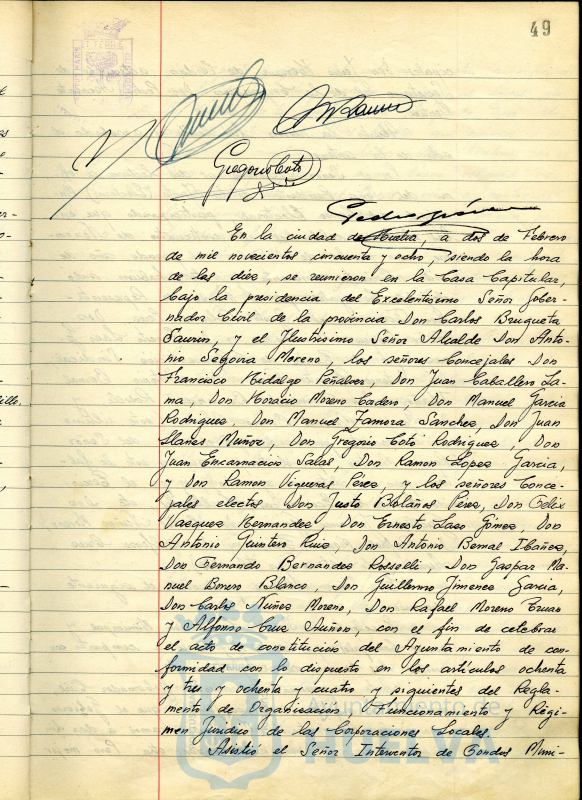 49
Gregorio Coto
En la ciudad de Huelva, a dos de Febrero
de mil novecientos cincuenta y ocho, siendo la hora
de las diez, se reunieron en la Casa Capitular,
bajo la presidencia del Excelentísimo Señor Gober-
nador Civil de la provincia Don Carlos Bruqueta
Saurin, y el Ilustrisimo Señor Alcalde Don Anto-
nio Segovia Moreno, los señores Concejales Don
Francisco Hidalgo Peñalver, Don Juan Caballero La-
ma, Don Horacio Moreno Cadero, Don Manuel Garcia
Rodriguez, Don Manuel Zamora Sanchez, Don Juan
Llanes Muñoz, Don Gregorio Coto Rodriguez, Don
Juan Encarnacion Salas, Don Ramon Lopez Garcia,
y Don Ramon Viqueras Perez, y los señores Conce-
jales electos Don Justo Bolaños Perez, Don Felix
Vazquez Hernandez, Don Ernesto Laso Gómez, Don
Antonio Quintero Ruiz, Don Antonio Bernal Ibañez,
Don Fernando Bernandez Rosselli, Don Gaspar Ma-
nuel Borrero Blanco, Don Guillermo Jimenez Garcia,
Don Carlos Nuñez Moreno, Don Rafael Moreno
y Alfonso Cruz Auñon, con el fin de celebrar
el acto de constitucion del Ayuntamiento de con-
formidad con lo dispuesto en los articulos ochenta
y tres y ochenta y cuatro y siguientes del Regla-
mento de Organizacion Funcionamiento y Régi-
men Juridico de las Corporaciones Locales.
Asistió el Señor Interventor de Fondos Muni-
Ayuntamiento de
HUELVA